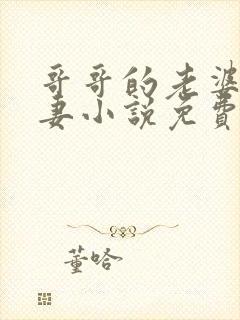 哥哥的老婆
妻小説免費
董哈